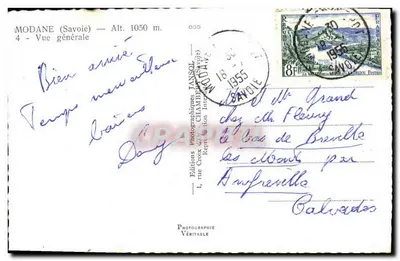 MODANE (Savoie) — Alt. 1050 m.
4 - Vue générale
Bien arrivé
Temps merveilleux
baisers
Dany
Editions Photographiques JANSOL
1, rue Croix
CHAMBÉRY
Reproduction
PHOTOGRAPHIE
VÉRITABLE
MODANE
18
1955
SAVOIE
8F
1955
SAVOIE
Mr Grand
chez Mr Fleury
le bas de Breville
les Monts par
Amfreville
Calvados